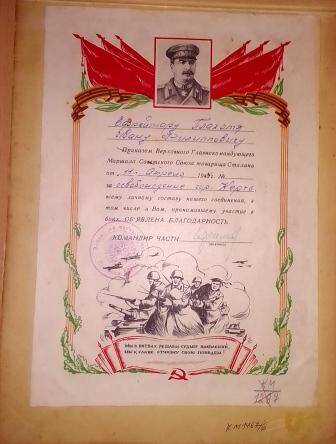 Ефрейтору
Ивану Филипповичу
Приказом Верховного Главнокомандующего
Маршала Советского Союза товарища Сталина
от „11“ апреля 194 г. №
за освобождение гор. Керчь
всему личному составу нашего соединения, в
том числе и Вам, принимавшему участие в
боях, ОБ'ЯВЛЕНА БЛАГОДАРНОСТЬ.
КОМАНДИР ЧАСТИ
МЫ В БИТВАХ РЕШАЕМ СУДЬБУ ПОКОЛЕНИЙ,
МЫ К СЛАВЕ ОТЧИЗНУ СВОЮ ПОВЕДЕМ!
КМ
КМ 1167/6